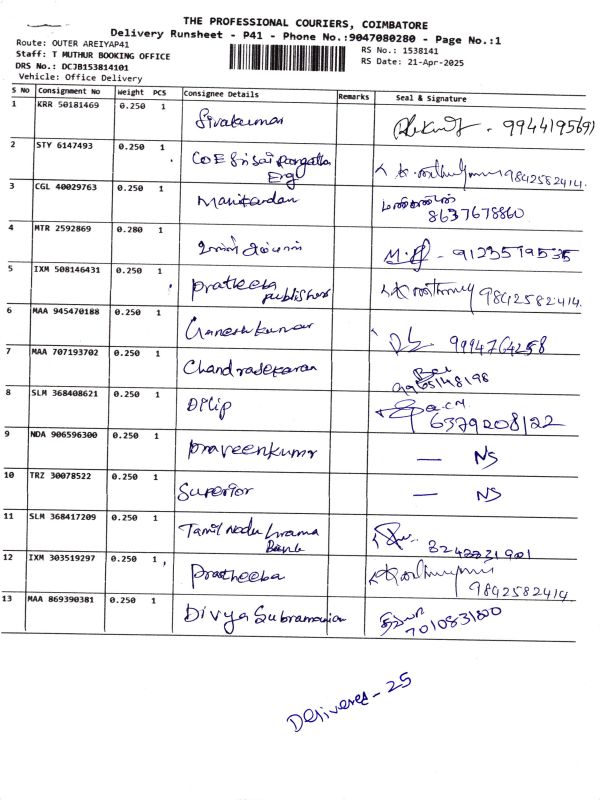 THE PROFESSIONAL COURIERS, COIMBATORE
Delivery Runsheet - P41 - Phone No.:9047080280 - Page No.:1
Route: OUTER AREIYAP41
RS No.: 1538141
Staff: T MUTHUR BOOKING OFFICE
DRS No.: DCJB153814101
RS Date: 21-Apr-2025
Vehicle: Office Delivery
S No Consignment No Weight PCS Consignee Details Remarks Seal & Signature
1 KRR 50181469 0.250 1 Sivakumar
2 STY 6147493 0.250 1 COE Sri Sai Ranganathar Eng 9842582414.
3 CGL 40029763 0.250 1 Manikandan மணிகண்டன் 8637678860
4 MTR 2592869 0.280 1 9123519535
5 IXM 508146431 0.250 1 Pratheeba publishers 9842582414.
6 MAA 945470188 0.250 1 Ganeshkumar 9994764258
7 MAA 707193702 0.250 1 Chandrasekaran 9965148198
8 SLM 368408621 0.250 1 Dilip 6379208122
9 NDA 906596300 0.250 1 Praveenkumr — NS
10 TRZ 30078522 0.250 1 Superior — NS
11 SLM 368417209 0.250 1 Tamil Nadu Grama Bank
12 IXM 303519297 0.250 1 Pratheeba 9842582414
13 MAA 869390381 0.250 1 Divya Subramanian திவ்யா 7010831800
Delivered - 25